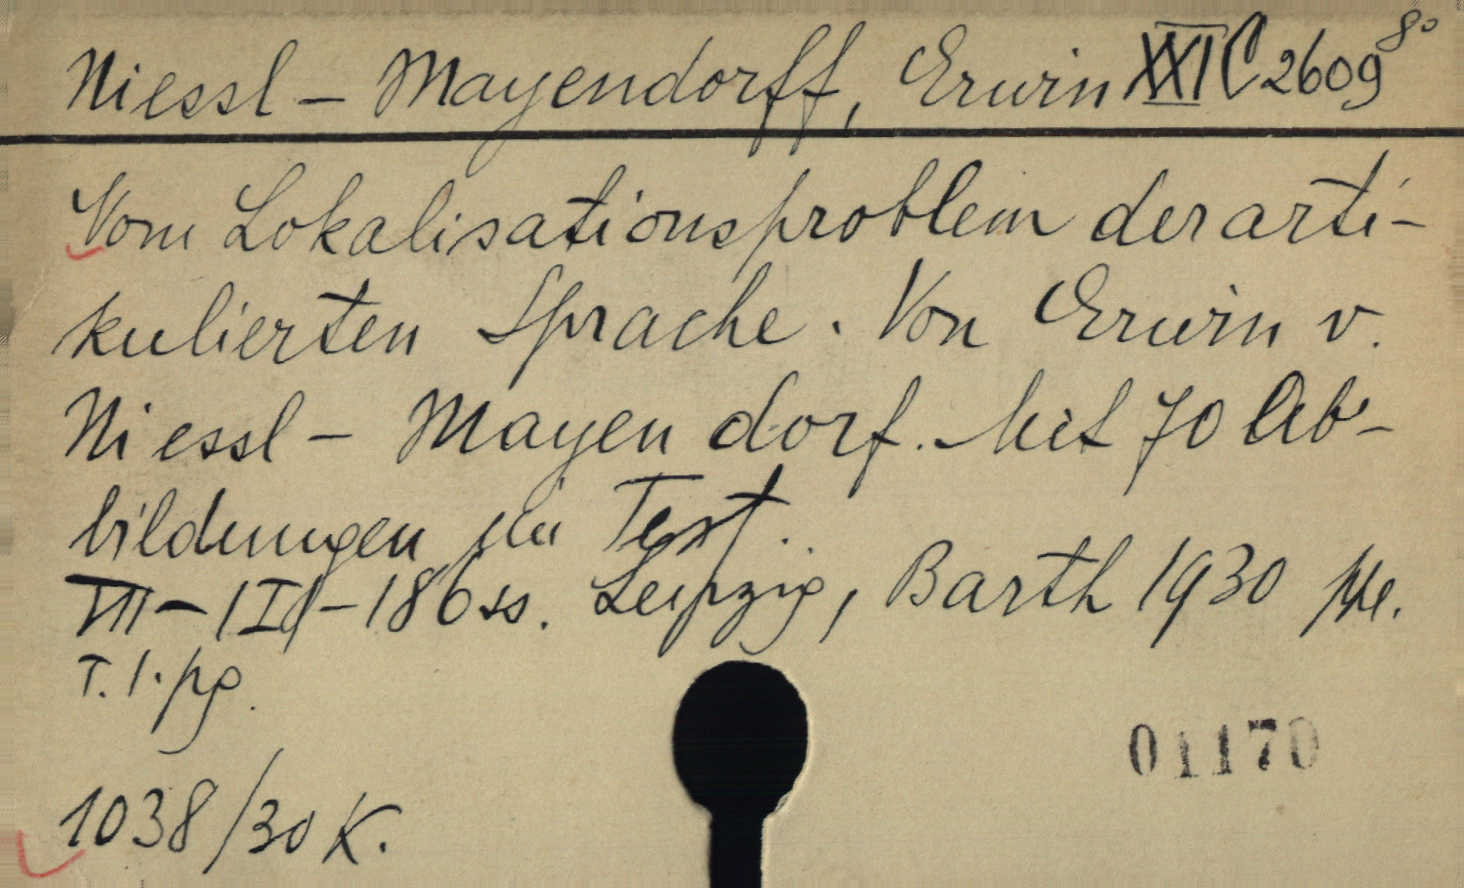 Niessl - Mayendorff, Erwin XXI C 2609 8°
Vom Lokalisationsproblem der arti-
kulierten Sprache. Von Erwin v.
Niessl - Mayendorf. Mit 70 Ab-
bildungen im Text.
VII - 186 ss. Leipzig, Barth 1930
T. 1. pg.
01170
1038/30 K.